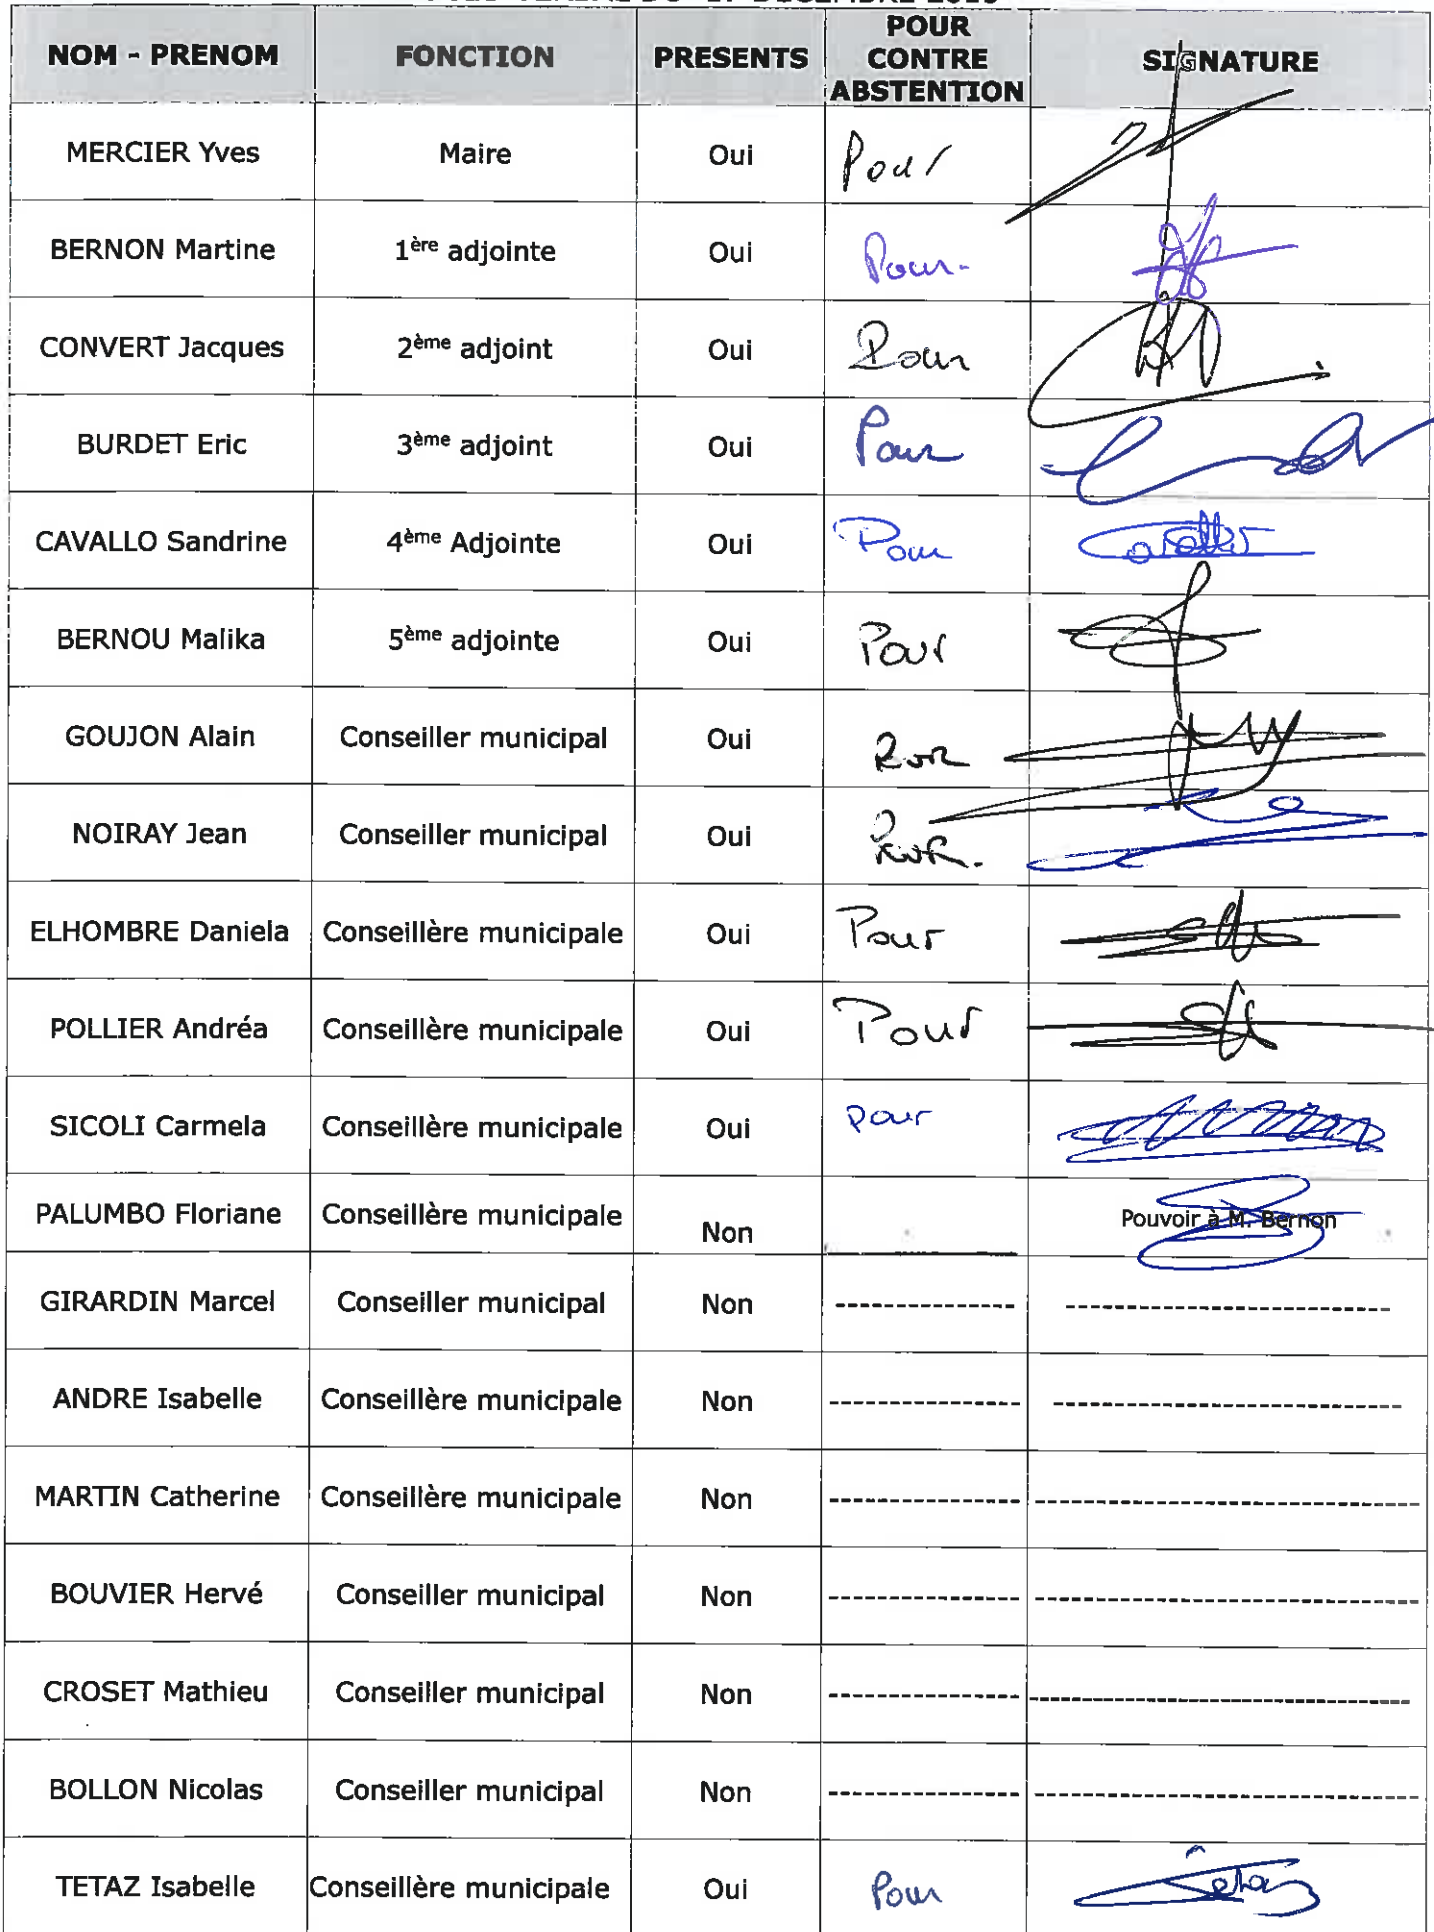 NOM - PRENOM FONCTION PRESENTS POUR CONTRE ABSTENTION SIGNATURE
MERCIER Yves Maire Oui Pour
BERNON Martine 1ère adjointe Oui Pour.
CONVERT Jacques 2ème adjoint Oui Pour
BURDET Eric 3ème adjoint Oui Pour
CAVALLO Sandrine 4ème Adjointe Oui Pour Cavallo
BERNOU Malika 5ème adjointe Oui Pour
GOUJON Alain Conseiller municipal Oui Pour
NOIRAY Jean Conseiller municipal Oui Pour.
ELHOMBRE Daniela Conseillère municipale Oui Pour
POLLIER Andréa Conseillère municipale Oui Pour
SICOLI Carmela Conseillère municipale Oui pour
PALUMBO Floriane Conseillère municipale Non Pouvoir à M. Bernon
GIRARDIN Marcel Conseiller municipal Non
ANDRE Isabelle Conseillère municipale Non
MARTIN Catherine Conseillère municipale Non
BOUVIER Hervé Conseiller municipal Non
CROSET Mathieu Conseiller municipal Non
BOLLON Nicolas Conseiller municipal Non
TETAZ Isabelle Conseillère municipale Oui Pour Tetaz